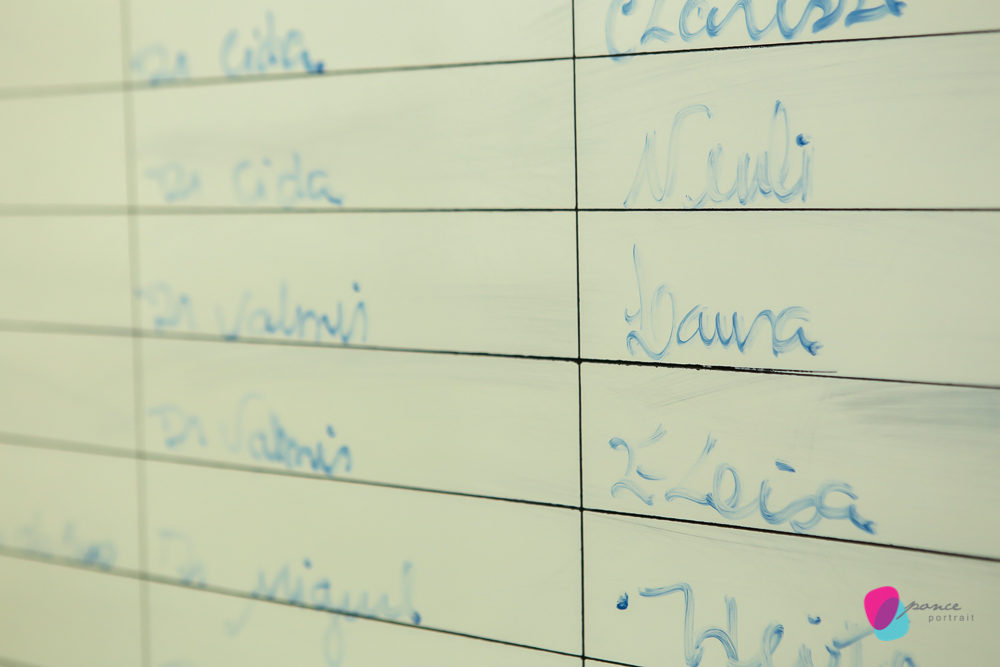 Dr Cida Clarissa
Dr Cida Neuli
Dr Valmis Laura
Dr Valmis
Dr Miguel
ponce
portrait